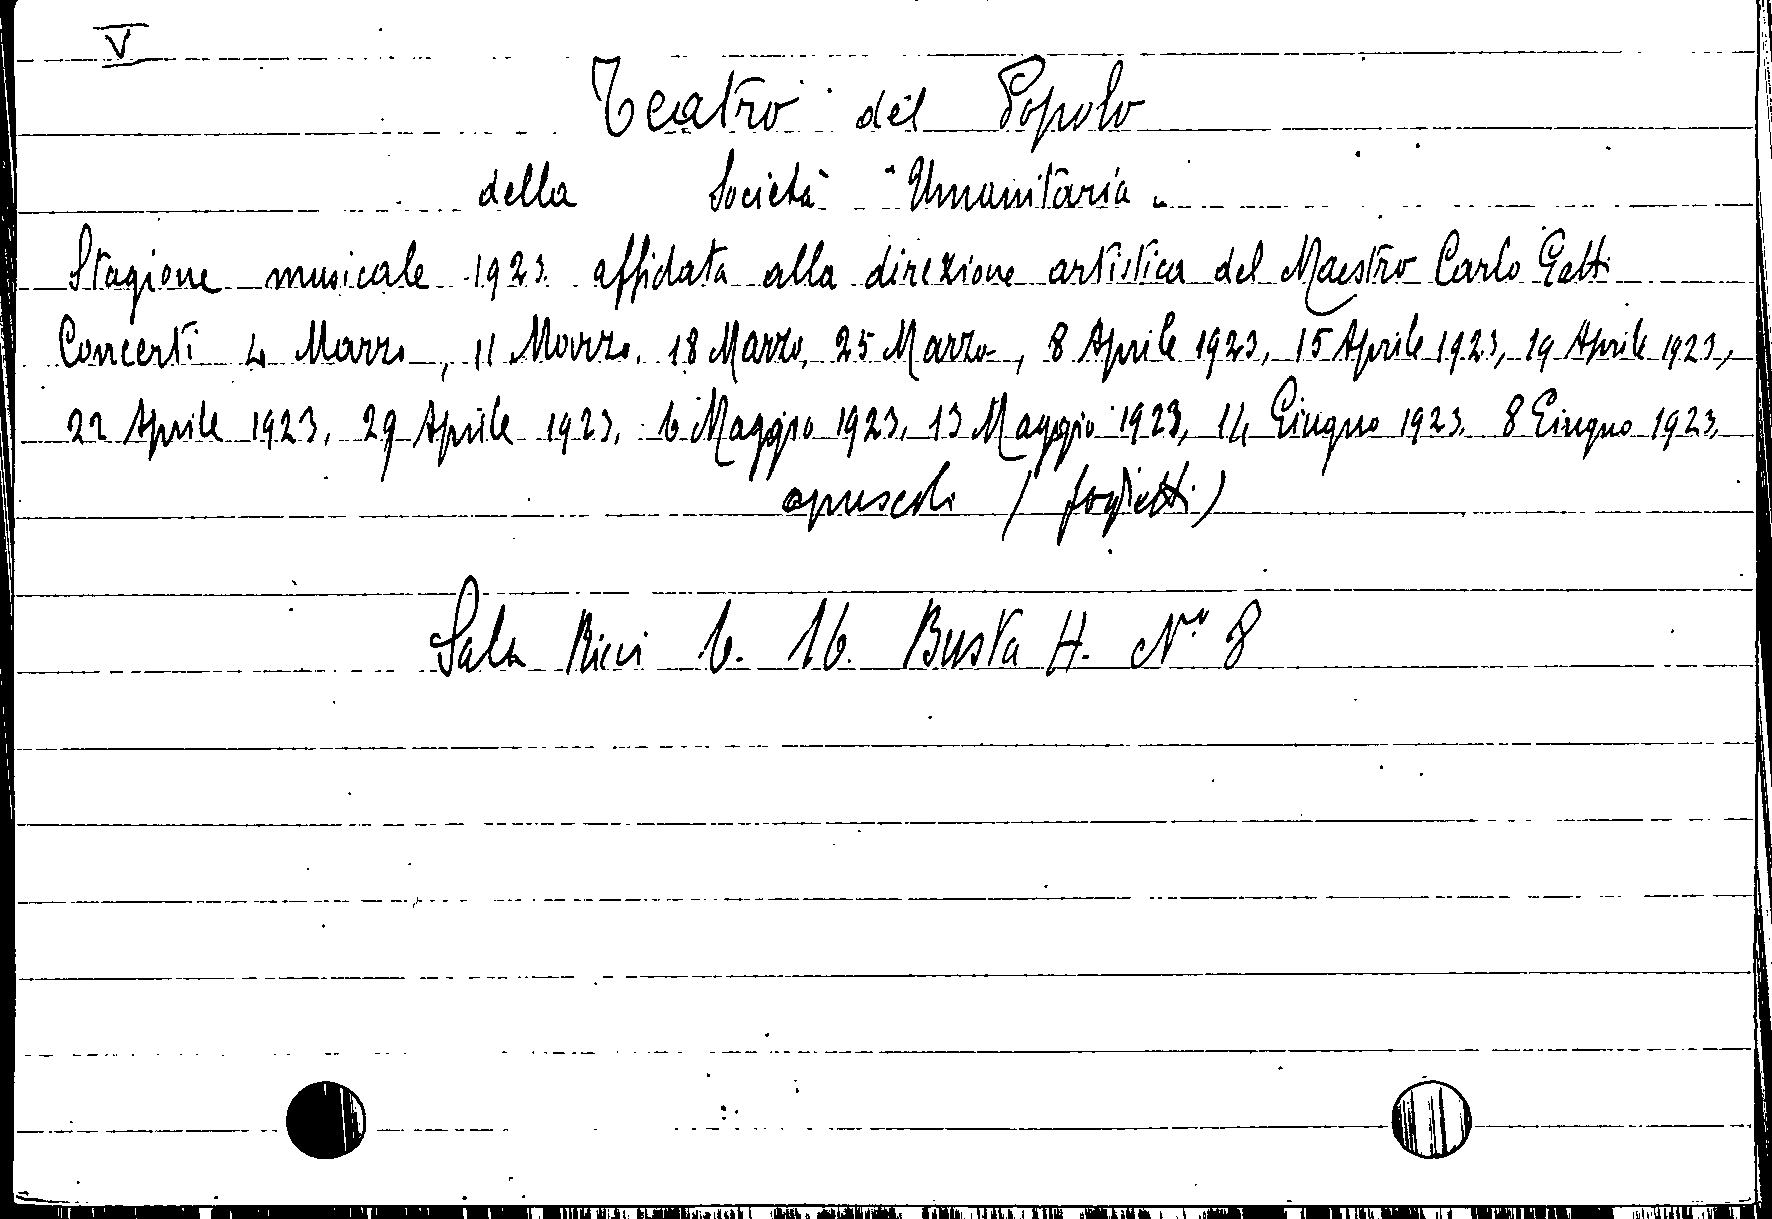 V
Teatro del Popolo
della Società "Umanitaria"
Stagione musicale 1923. affidata alla direzione artistica del Maestro Carlo Gatti
Concerti 4 Marzo, 11 Marzo, 18 Marzo, 25 Marzo, 8 Aprile 1923, 15 Aprile 1923, 19 Aprile 1923,
22 Aprile 1923, 29 Aprile 1923, 6 Maggio 1923, 13 Maggio 1923, 14 Giugno 1923. 8 Giugno 1923.
opuscoli (foglietti)
Sala Ricci 6. 16. Busta H. N.º 8